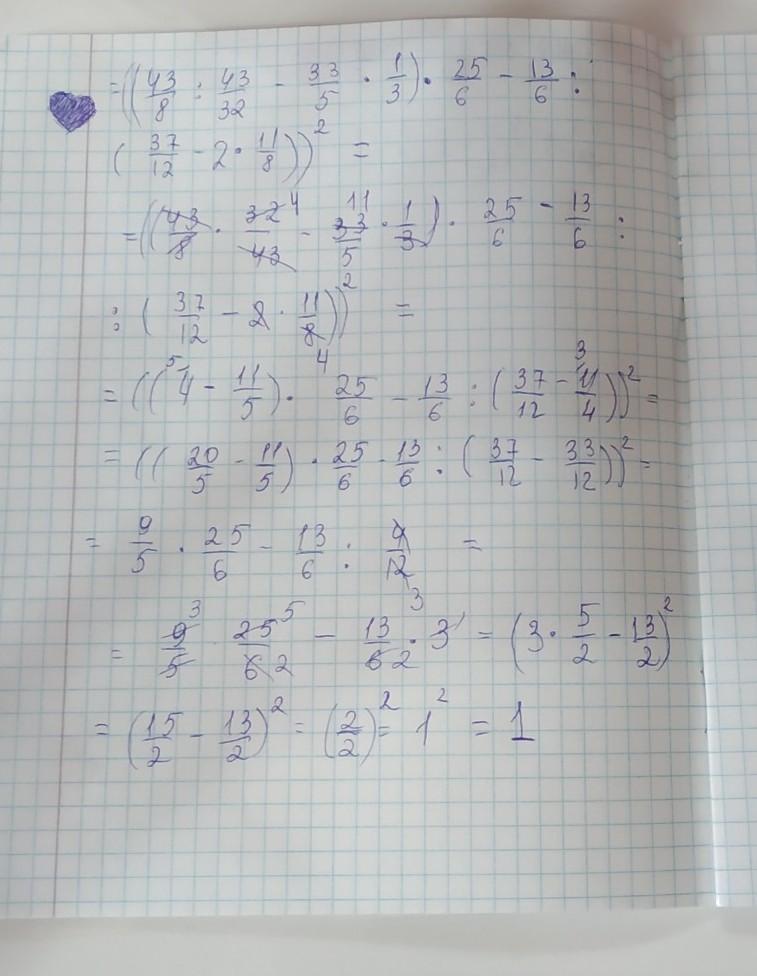 =((43/8 : 43/32 - 33/5 · 1/3) · 25/6 - 13/6 :
(37/12 - 2 · 11/8))² =
=((43/8 · 32/43 4 - 11 33/5 · 1/3) · 25/6 - 13/6 :
: (37/12 - 2 · 11/8 4))² =
= ((5 4 - 11/5) · 25/6 - 13/6 : (37/12 - 3 11/4))² =
= ((20/5 - 11/5) · 25/6 - 13/6 : (37/12 - 33/12))² =
= 9/5 · 25/6 - 13/6 : 4/12 3 =
= 9 3/5 · 25 5/6 2 - 13/6 2 · 3 = (3 · 5/2 - 13/2)²
= (15/2 - 13/2)² = (2/2)² = 1² = 1